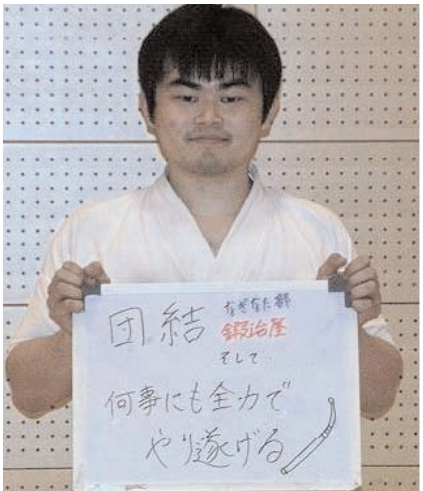 団結
なぎなた部
鍛冶屋
そして.
何事にも全力で
やり遂げる